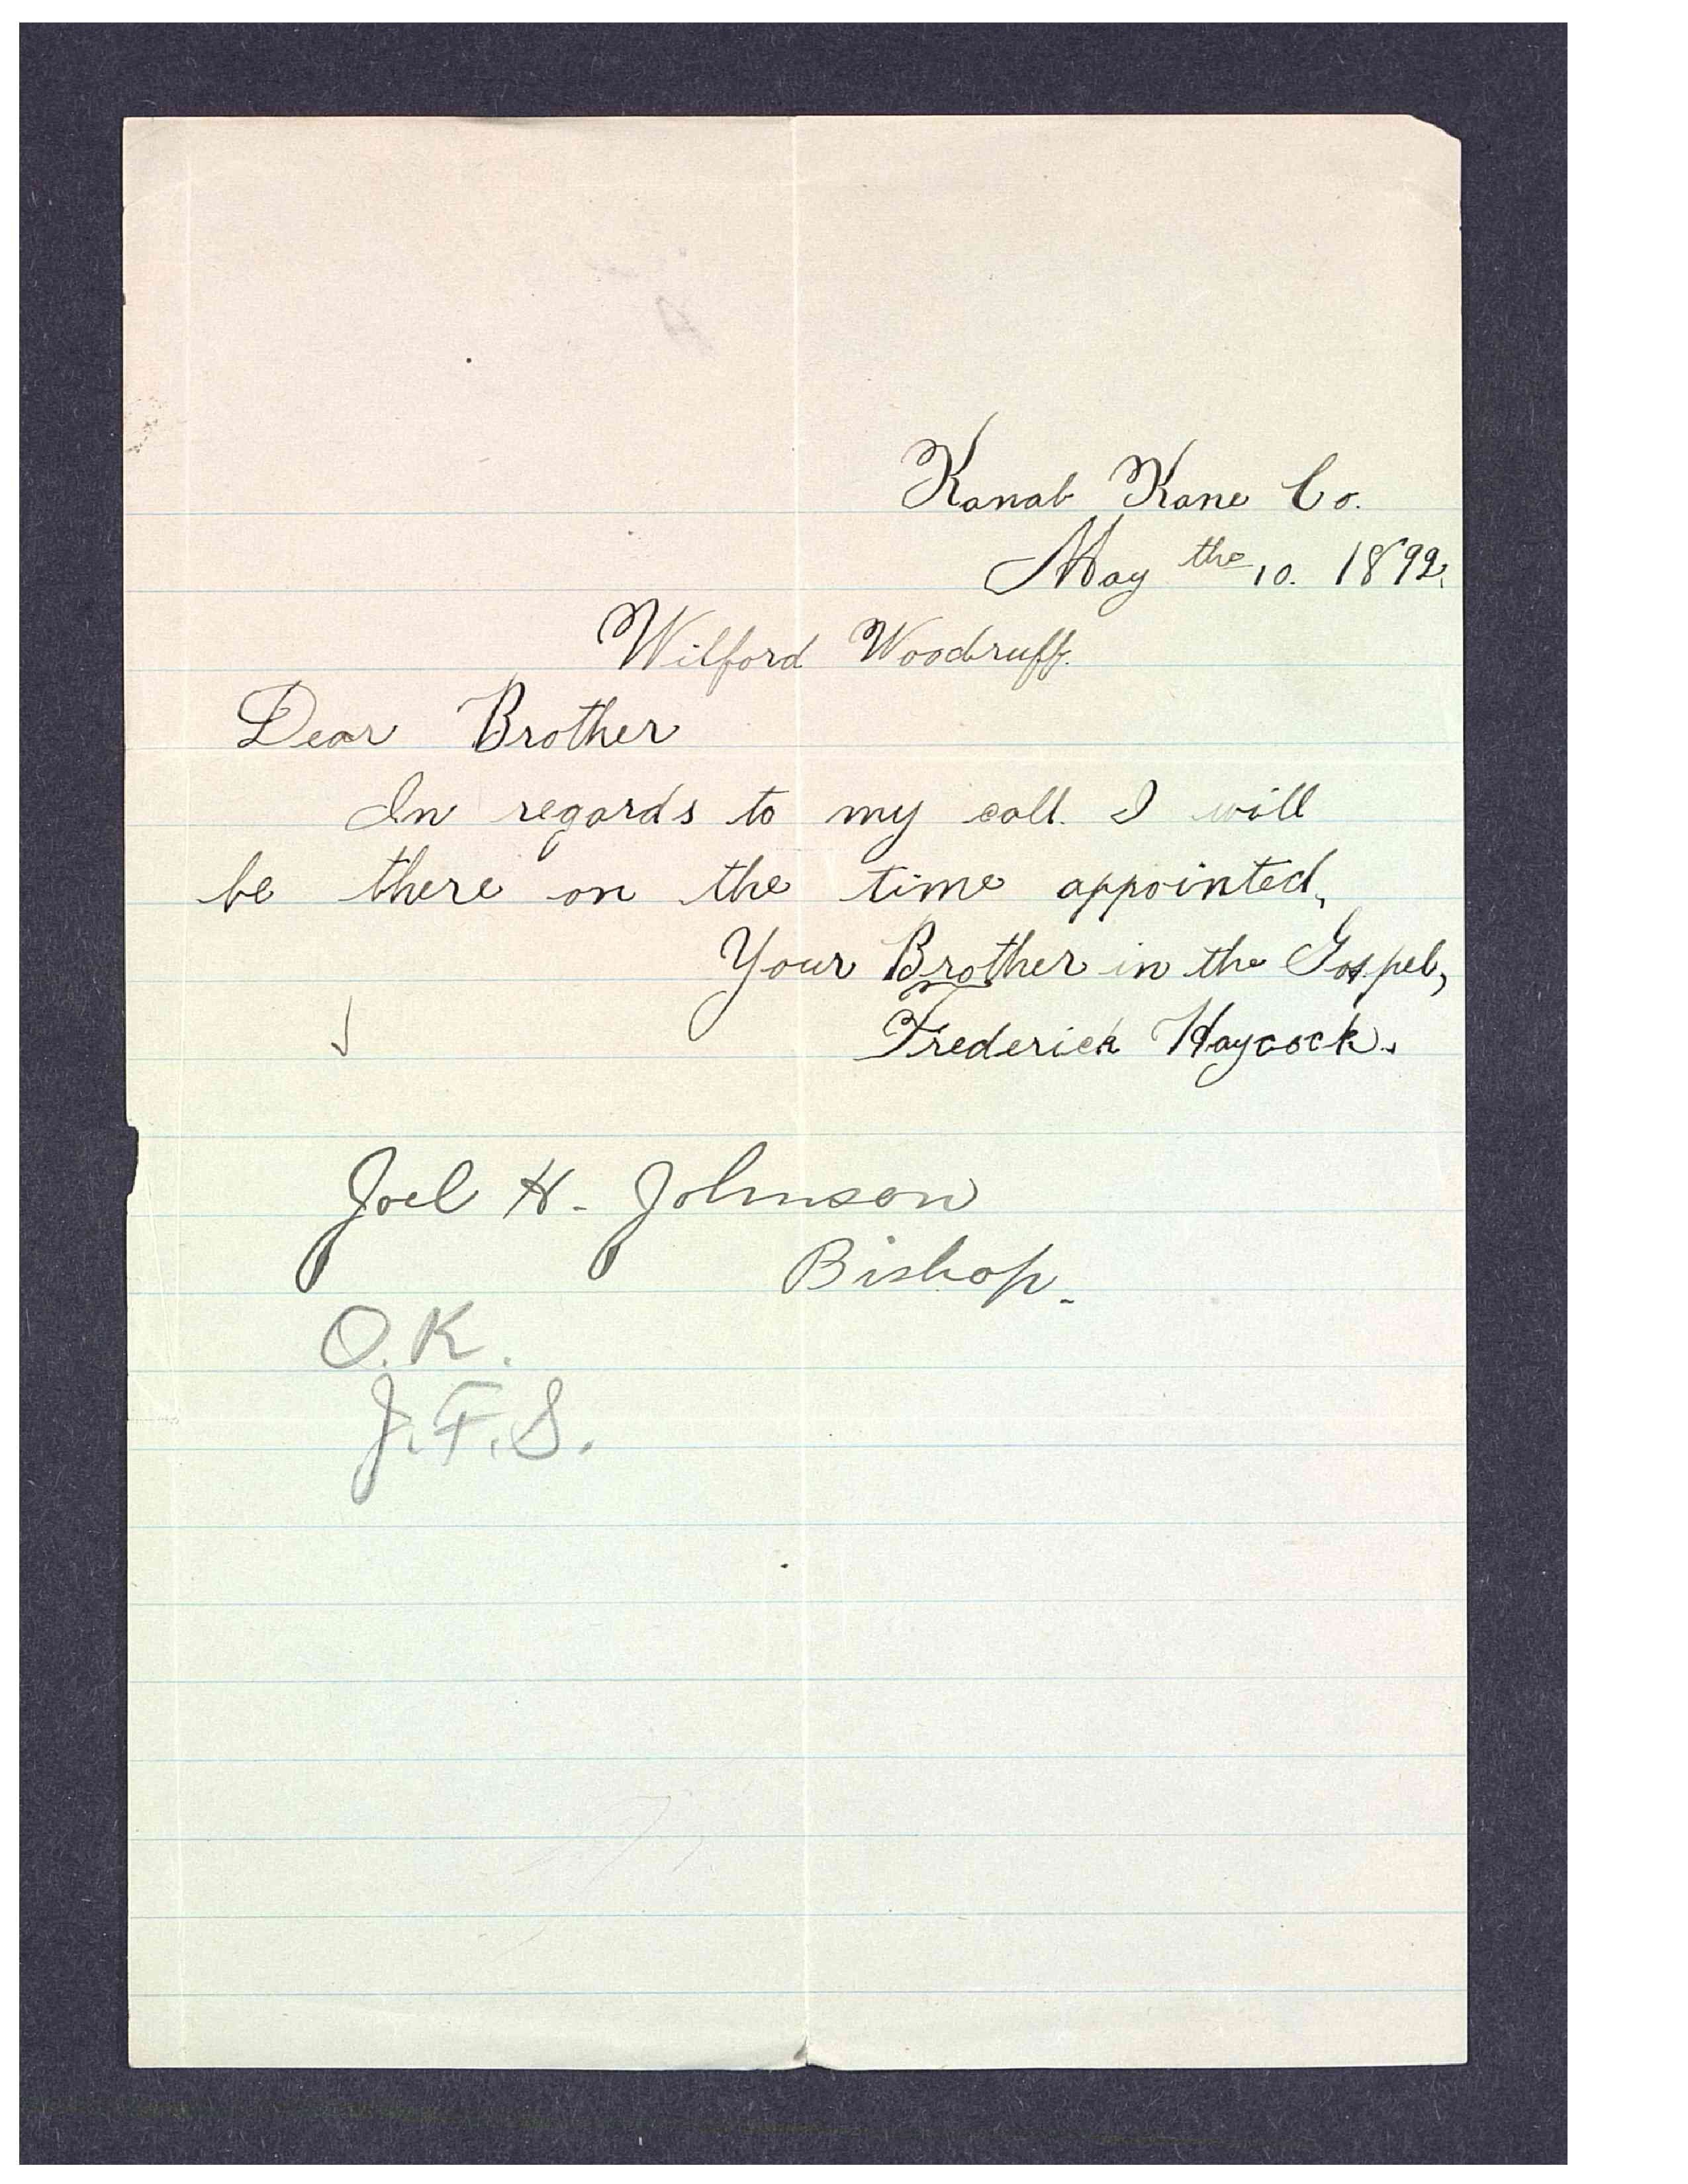 Kanab Kane Co.
May the 10. 1892.
Wilford Woodruff.
Dear Brother
In regards to my call. I will
be there on the time appointed,
Your Brother in the Gospel,
Frederick Haycock.
Joel H. Johnson
Bishop.
O.K.
J.F.S.